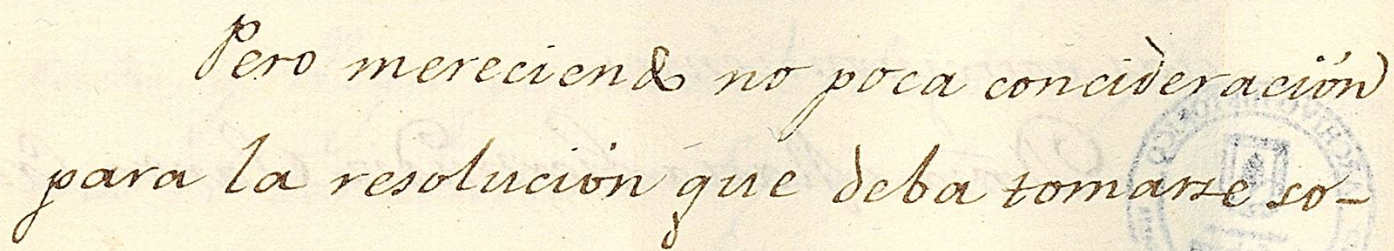 Pero mereciendo no poca concideración
para la resolución que deba tomarse so-